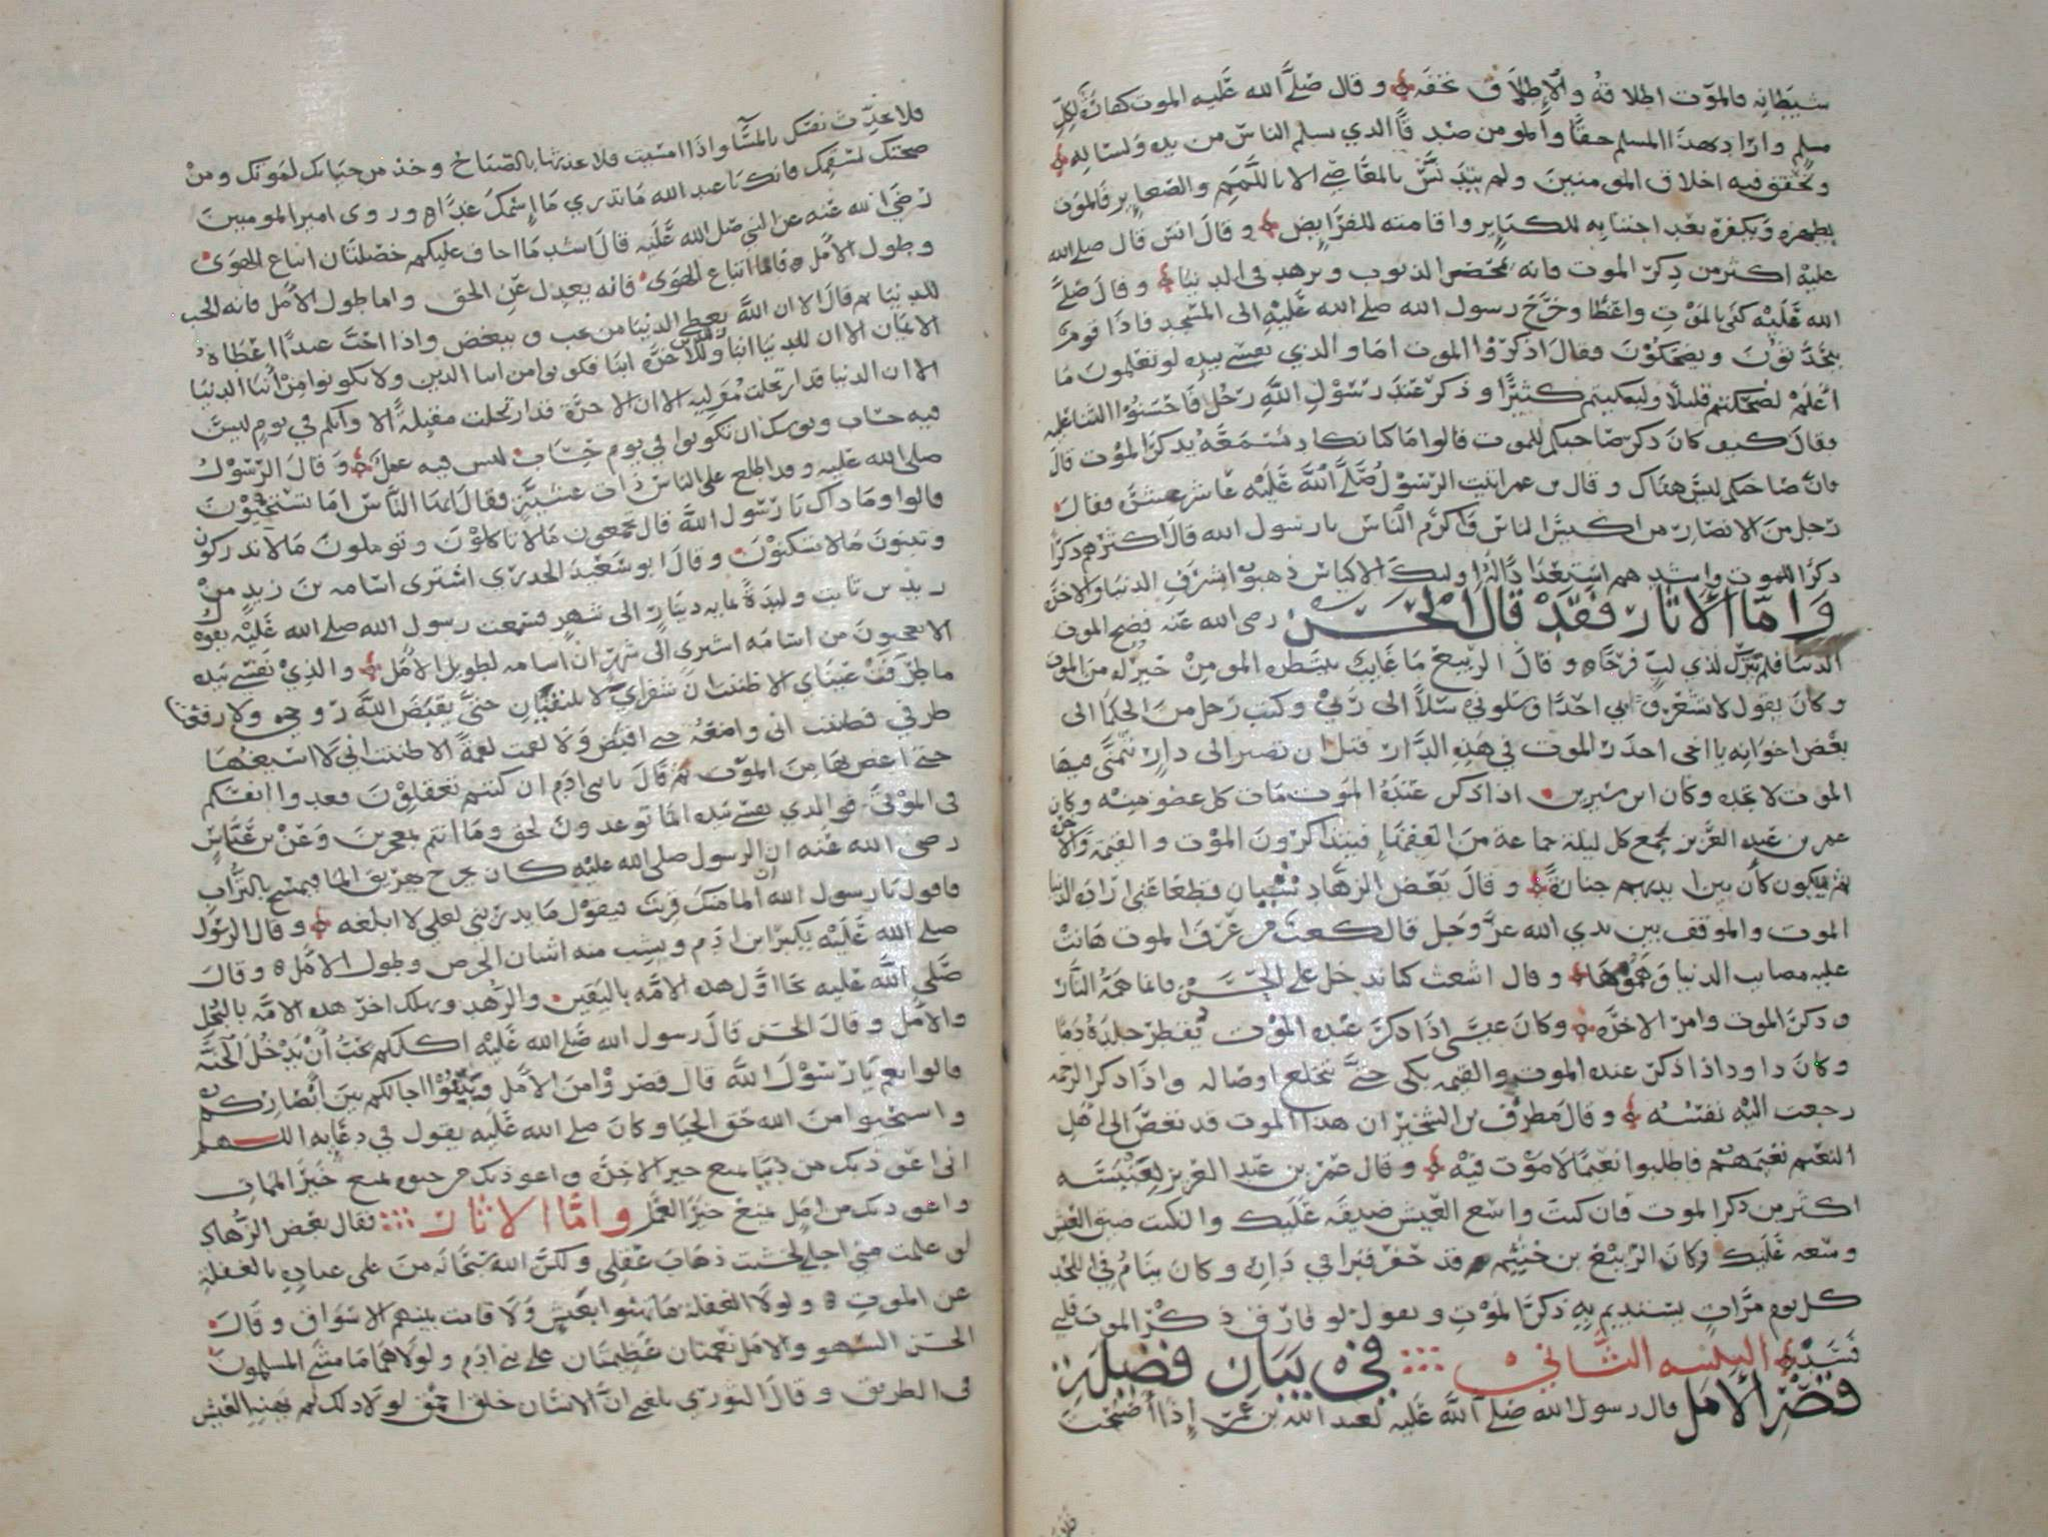 شيطانه فالموت اطلاقه والإطلاق تحفه وقال صلى الله عليه الموت كفارة لكل
مسلم وارادبهذا المسلم حقا والمومن صدقا الذي يسلم الناس من يده ولسانه
وتحقق فيه اخلاق المومنين ولم يتدنس بالمعاصي الا باللمم والصغاير فالموت
يطهره ويكفره بعد اجتنابه للكباير واقامته للفرايض وقال انس قال صلى الله
عليه اكثر من ذكر الموت فانه يمحص الذنوب ويزهد في الدنيا وقال صلى
الله عليه كفى بالموت واعظا وخرج رسول الله صلى الله عليه الى المسجد فاذا قوم
يتحدثون ويضحكون وقال اذكروا الموت اما والذي نفسي بيده لو تعلمون ما
أعلم لضحكتم قليلا ولبكيتم كثيرا وذكر عند رسول الله رجل فاحسنوا الثنا عليه
وقال كيف كان ذكر صاحبكم للموت قالوا ما كنا نكاد نسمعه يذكر الموت قال
فان صاحبكم ليس هناك وقال بن عمر اتيت الرسول صلى الله عليه عاشر عشرة فقال
رجل من الانصار من اكيس الناس واكرم الناس يا رسول الله قال اكثرهم ذكرا
ذكرا للموت واشدهم استعدادا له اوليك الاكياس ذهبوا بشرف الدنيا والاخرة
وامّا الاثار فقد قال الحسن رضي الله عنه فضح الموت
الدنيا فلم يترك لذي لب فرحا وقال الربيع ما غايب ينتظره المومن خير له من الموت
وكان يقول لا تشعروا بي احدا وسلوني سلا الى ربي وكتب رجل من الحكما الى
بعض اخوانه يا اخي احذر الموت في هذه الدار قبل ان تصير الى دار تتمنى فيها
الموت لا تجده وكان ابن سيرين اذا ذكر عنده الموت مات كل عضو منه وكان
عمر بن عبد العزيز يجمع كل ليلة جماعة من الفقها فيتذاكرون الموت والقيمة والاخرة
ثم يبكون كأن بين ايديهم جنازة وقال بعض الزهاد شيئان قطعا عني لذاذة الدنيا
الموت والموقف بين يدي الله عز وجل قال كعب من عرف الموت هانت
عليه مصايب الدنيا وهمومها وقال اشعث كنا ندخل على الحسن فانما همه النار
وذكر الموت وامر الاخره وكان عيسى اذا ذكر عنده الموت يقطر جلده دما
وكان داود اذا ذكر عنده الموت والقيمه بكى حتى تنخلع اوصاله واذا ذكر الرحمه
رجعت اليه نفسه وقال مطرف بن الشخير ان هذا الموت قد نغص الى اهل
النعيم نعيمهم فاطلبوا نعيما لا موت فيه وقال عمر بن عبد العزيز لعنبسه
اكثر من ذكر الموت فان كنت واسع العيش ضيقه عليك وان كنت ضيق العيش
وسعه عليك وكان الربيع بن خثيم قد حفر قبرا في داره وكان ينام في اللحد
كل يوم مرات يستديم به ذكر الموت ويقول لو فارق ذكر الموت قلبي
فسد البينه الثاني في بيان فضيلة
قصر الأمل قال رسول الله صلى الله عليه لعبد الله بن عمر إذا أصبحت
فلا تحدث نفسك بالمسا واذا امسيت فلا تحدثها بالصباح وخذ من حياتك لموتك ومن
صحتك لسقمك فانك يا عبد الله ما تدري ما إسمك غدا وروى امير المومنين
رضي الله عنه عن النبي صلى الله عليه قال اشد ما اخاف عليكم خصلتان اتباع الهوى
وطول الامل فاما اتباع الهوى فانه يعدل عن الحق واما طول الامل فانه الحب
للدنيا ثم قال الا ان الله يعطي الدنيا من يحب ويبغض واذا احب عبدا اعطاه
الايمان الا ان للدنيا ابنا وللاخرة ابنا فكونوا من ابنا الدين ولا تكونوا من أبنا الدنيا
الا ان الدنيا قد ارتحلت موليه الا ان الاخرة قد ارتحلت مقبلة الا وانكم في يوم ليس
فيه حساب ويوشك ان تكونوا في يوم حساب ليس فيه عمل وقال الرسول
صلى الله عليه وقد اطلع على الناس ذات عشية فقال ايها الناس اما تستحيون
قالوا وما ذاك يا رسول الله قال تجمعون ما لا تاكلون وتوملون ما لا تدركون
وتبنون ما لا تسكنون وقال ابو سعيد الخدري اشترى اسامه بن زيد من
زيد بن ثابت وليدة بمايه دينار الى شهر فسمعت رسول الله صلى الله عليه يقول
الا تعجبون من اسامه اشترى الى شهر ان اسامه لطويل الامل والذي نفسي بيده
ما طرفت عيناي الا ظننت ان شفراي لا يلتقيان حتى يقبض الله روحي ولا رفعت
طرفي فظننت اني واضعه حتى اقبض ولا لقمت لقمة الا ظننت اني لا اسيغها
حتى اغص بها من الموت ثم قال يا بني ادم ان كنتم تعقلون فعدوا انفسكم
في الموتى فوالذي نفسي بيده انما توعدون لحق وما انتم بمعجزين وعن بن عباس
رضي الله عنه ان الرسول صلى الله عليه كان يخرج يهريق الما فيمسح بالتراب
فاقول يا رسول الله ان الما منك قريب فيقول ما يدريني لعلي لا ابلغه وقال الرسول
صلى الله عليه يكبر ابن ادم ويشب منه اثنان الحرص وطول الامل وقال
صلى الله عليه نجا اول هذه الامه باليقين والزهد ويهلك اخر هذه الامه بالبخل
والامل وقال الحسن قال رسول الله صلى الله عليه اكلكم يحب أن يدخل الجنة
قالوا نعم يا رسول الله قال قصروا من الامل وثبتوا اجالكم بين أبصاركم
واستحيوا من الله حق الحيا وكان صلى الله عليه يقول في دعايه اللهم
اني اعوذ بك من دنيا تمنع خير الاخره واعوذ بك من حيوه تمنع خير الممات
واعوذ بك من امل يمنع خير العمل واما الاثار فقال بعض الزهاد
لو علمت متى اجلي لخشيت ذهاب عقلي ولكن الله سبحانه من على عباده بالغفلة
عن الموت ولولا الغفلة ما تهنوا بعيش ولا قامت بينهم الاسواق وقال
الحسن السهو والامل نعمتان عظيمتان على بني ادم ولولاهما ما مشى المسلمون
في الطريق وقال الثوري بلغني ان الانسان خلق احمق لولا ذلك لم يهنيه العيش